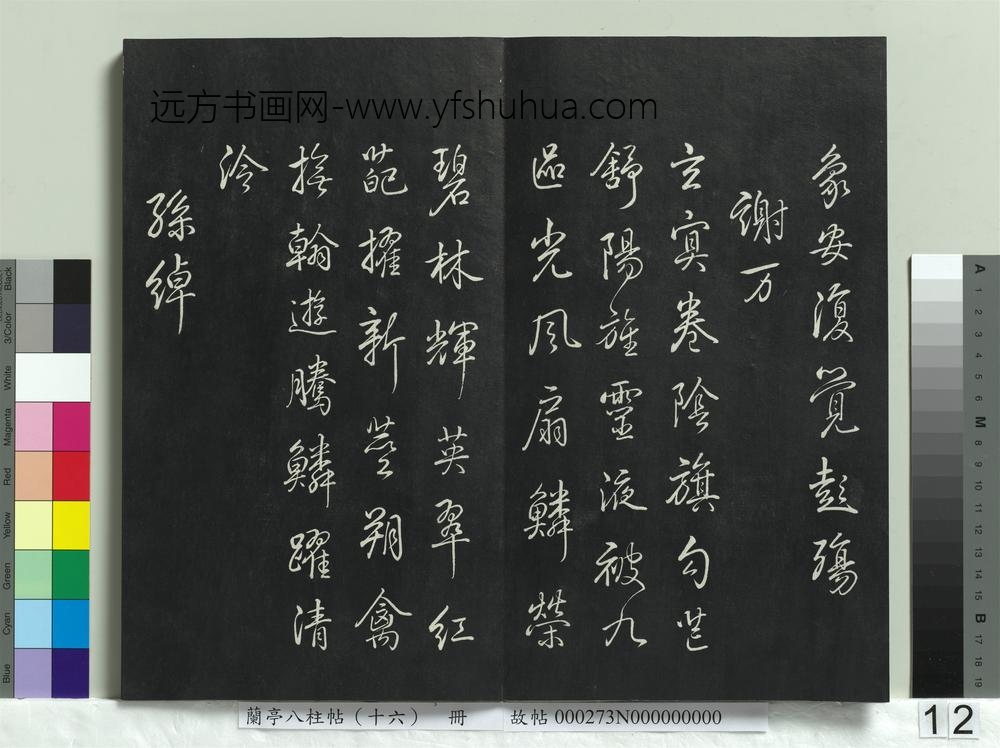 远方书画网-www.yfshuhua.com
象安復覺彭殤
謝万
玄冥卷陰旗勾芒
舒陽旌靈液被九
區光風扇鱗榮
碧林輝英翠紅
葩擢新莖翔禽
撫翰遊騰鱗躍清
泠
孫綽
蘭亭八柱帖（十六） 冊 故帖 000273N000000000
12
Black
3/Color
White
Magenta
Red
Yellow
Green
Cyan
Blue
A
1
2
3
4
5
6
M
8
9
10
11
12
13
14
15
B
17
18
19